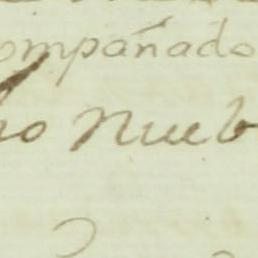 ompañado
ho nueb